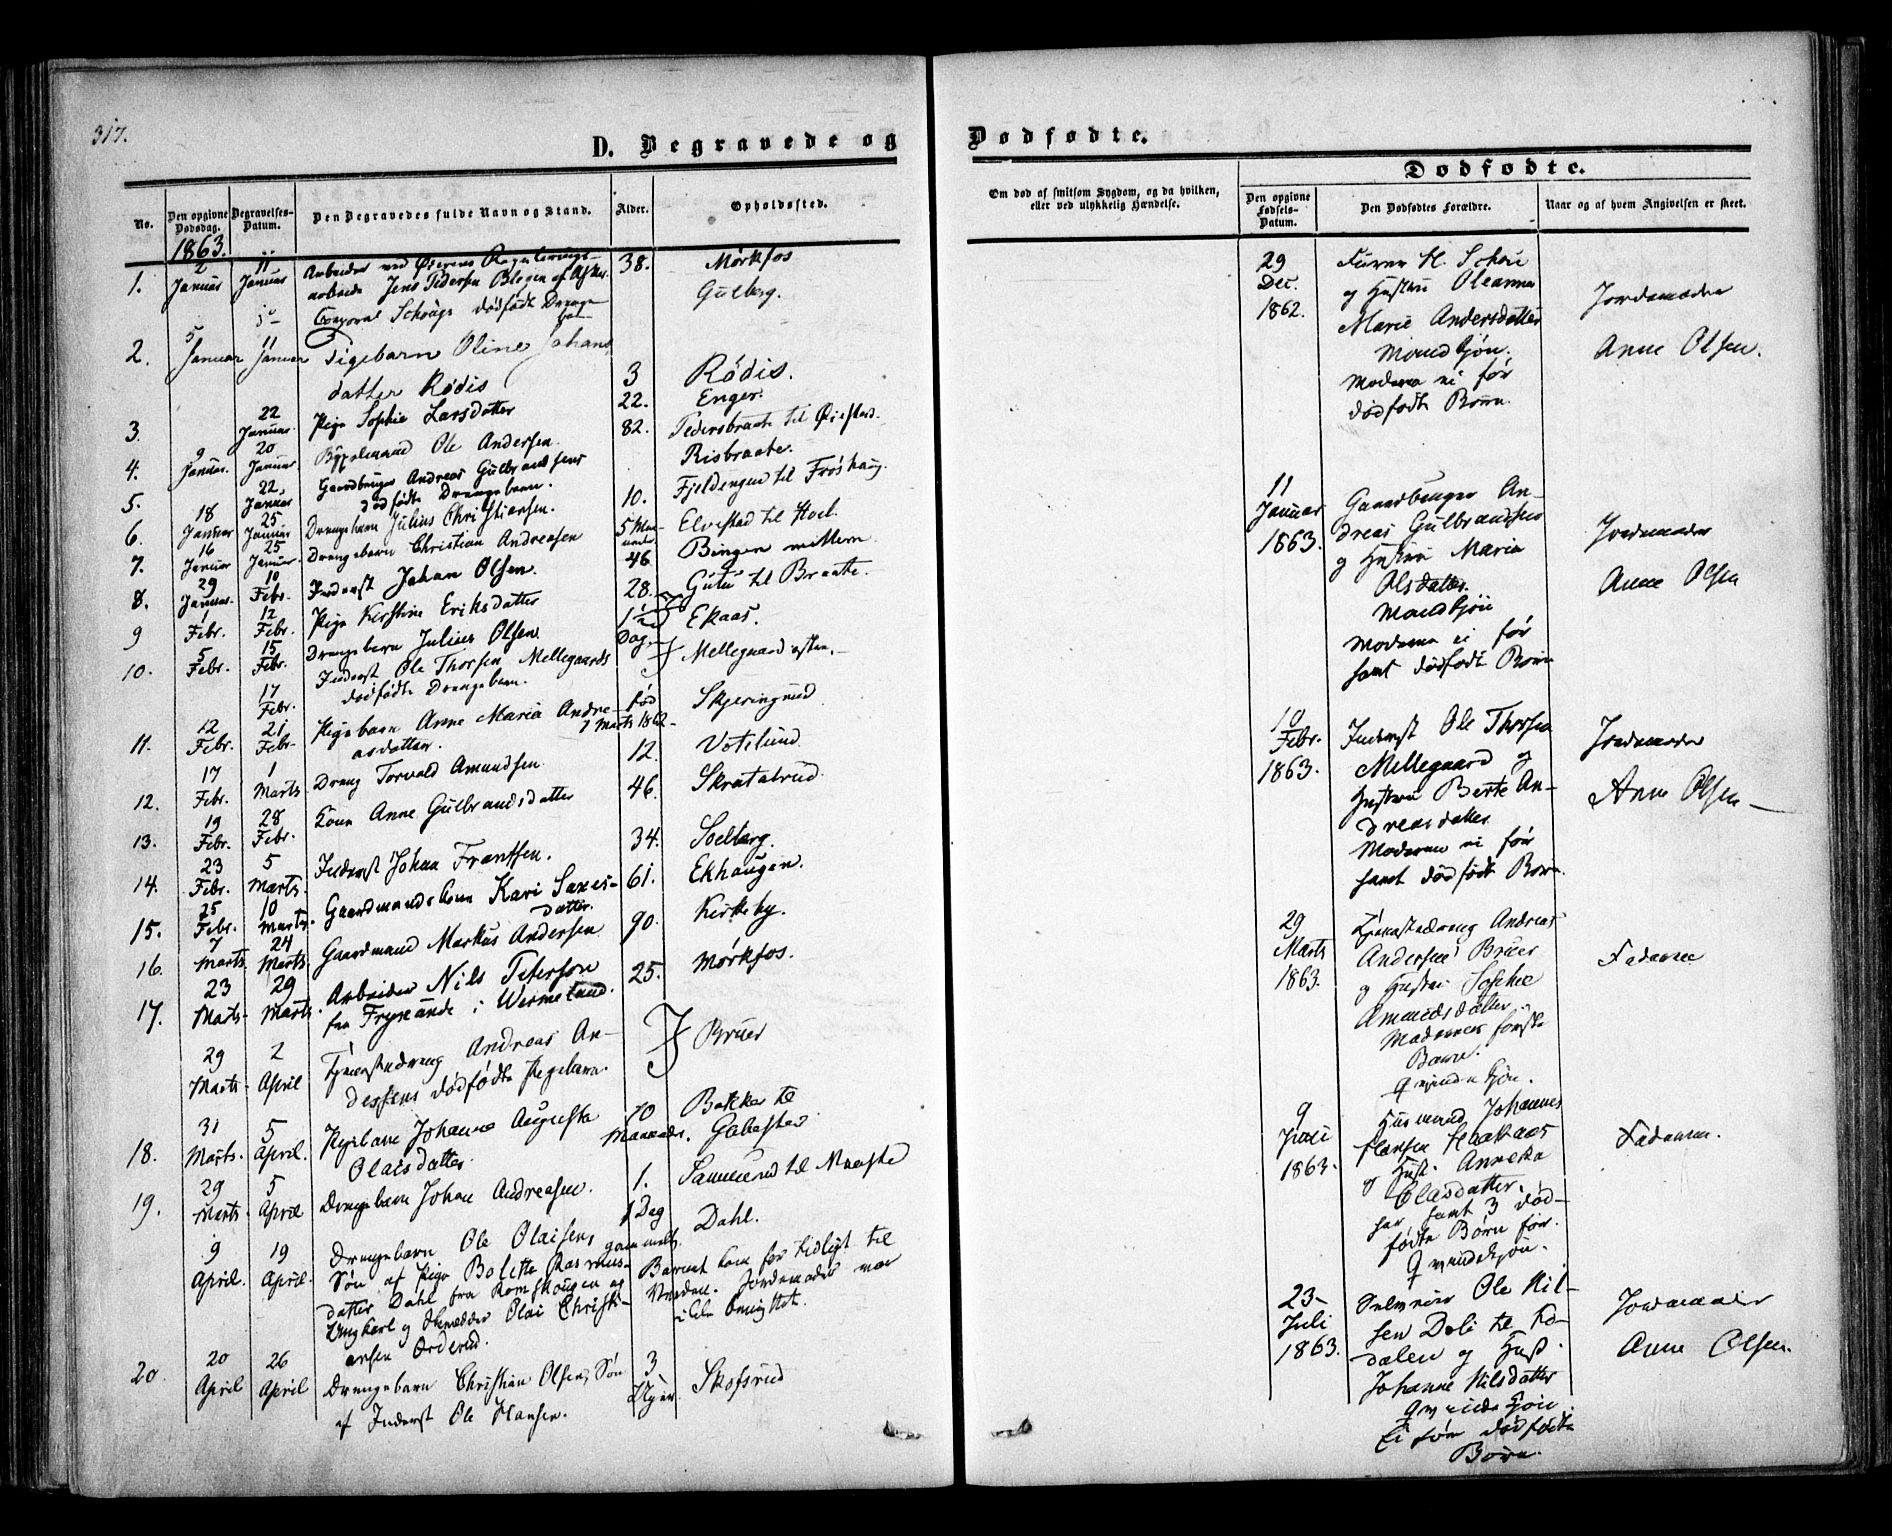 317.
D. Begravede og
No.
Den opgivne Dødsdag.
Begravelses-Datum.
Den Begravedes fulde Navn og Stand.
Alder.
Opholdssted.
1863.
1. 2 Januar 11 Januar Arbeider ved Øierens Regulerings-
arbeide Jens Pedersen 38. Mørkfos
dødfødte Drenge Gulberg.
2. 5 Januar 11 Januar Pigebarn Oline Johans
datter Rødis 3 Rødis.
3. 22 Januar Pige Sophie Larsdatter 22. Enger.
4. 9 Januar. 20 Januar Ole Andersen 82. Pedersbraate til
5. 22 Januar Gaardbruger Andreas Gulbrandsens
dødfødte Drengebarn. Risbraate.
6. 18 Januar 25 Januar Drengebarn Julius Christiansen. 10. Fjeldengen til Frøshaug.
7. 16 Januar 25 Januar Drengebarn Christian Andreasen 5 Maaneder Elvestad til Hoel.
8. 29 Januar 10 Febr. Inderst Johan Olsen. 46 Bingen mellem
9 1 Febr. 12 Febr. Pige Kirstine Eriksdatter 28. til Braate.
10. 5 Febr. 15 Febr. Drengebarn Julius Olsen 1½ Dag Ekaas.
17 Febr. Inderst Ole Thorsen Mellegaards
dødfødte Drengebarn. Mellegaard østen
11. 12 Febr. 21 Febr. Pigebarn Anne Maria Andre-
asdatter. fød 7 Marts 1862 Skjeringrud
12. 17 Febr. 1 Marts Dreng Torvald Amundsen 12. Votslund
13. 19 Febr. 28 Febr. Kone Anne Gulbrandsdatter 46. Skratabrud
14. 23 Febr. 5 Marts Inderst Johan Frantsen. 34. Solberg.
15. 25 Febr. 10 Marts Gaardmandskone Kari Saxes-
datter. 61. Ekhaugen.
16. 7 Marts 24 Marts Gaardmand Markus Andersen 90. Kirkeby.
17. 23 Marts 29 Marts Arbeider Nils Peterson
fra i Wermeland. 25. Mørkfos.
29 Marts 2 April Tjenestedreng Andreas An-
dersens dødfødte Pigebarn. Bruer
18. 31 Marts 5 April. Pigebarn Johanne Augusta
Olaisdatter 10 Maaneder. Bakker til
19. 29 Marts 5 April Drengebarn Johan Andreasen. 1. til
9 April. 19 April. Drengebarn Ole Olaisen, 1 Dag gammelt. Dahl.
Søn af Pige Bolette Rasmus-
datter Dahl fra Romskougen og
Ungkarl og Olai Christi-
ansen Orderud.
Barnet kom for tidligt til
Verden. Jordemoder var
20 20 April 26 April Drengebarn Christian Olsen, Søn
af Inderst Ole Hansen. 3 Uger. Skofsrud
Dødfødte.
Om død af smitsom Sygdom, og da hvilken,
eller ved ulykkelig Hændelse.
Dødfødte.
Den opgivne Fødsels-Datum.
Den Dødfødtes Forældre.
Naar og af hvem Angivelsen er skeet.
29 Dec. 1862.
og Hustru Oleanna
Marie Andersdatter
Mandkjøn.
Moderen ei før
dødfødte Børn.
Jordemoder
Anne Olsen.
11 Januar 1863.
Gaardbruger An-
dreas Gulbrandsen
og Hustru Maria
Olsdatter.
Mandkjøn
Moderen ei før
havt dødfødt Børn
Jordemoder
Anne Olsen
10 Febr. 1863.
Inderst Ole Thorsen
Mellegaard og
Hustru Berte An-
dreasdatter
Moderen ei før
havt dødfødt Børn.
Jordemoder
Anne Olsen
29 Marts 1863.
Tjenestedreng Andreas
Andersen Bruer
og Hustru Sophie
Amundsdatter.
Moderens første
Barn.
Qvindekjøn.
Faderen
9 Juni 1863.
Husmand Johannes
Hansen
og Hust. Anneka
Olasdatter.
har havt 3 død-
fødte Børn før.
Qvindekjøn.
Faderen.
23 Juli 1863.
Selveier Ole Nil-
sen Dali til
dalen og Hust.
Johanne Nilsdatter
Qvindekjøn.
Ei før dødfødte
Børn.
Jordemoder
Anne Olsen.